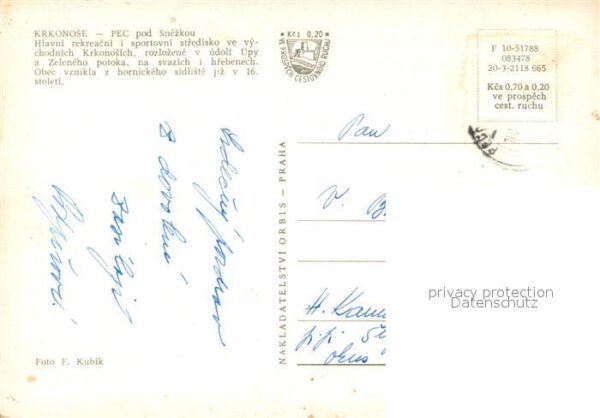 KRKONOŠE — PEC pod Sněžkou
Hlavní rekreační i sportovní středisko ve vý-
chodních Krkonoších, rozložené v údolí Úpy
a Zeleného potoka, na svazích i hřebenech.
Obec vznikla z hornického sídliště již v 16.
století.
Kčs 0,20
VE PROSPĚCH CESTOVNÍHO RUCHU
F 10-51788
083478
20-3-2118 665
Kčs 0,70 a 0,20
ve prospěch
cest. ruchu
PEC
Srdečný pozdrav
z dovolené
zasílají
NAKLADATELSTVÍ ORBIS — PRAHA
Pan
V. B
H. Kame
privacy protection
Datenschutz
Foto F. Kubík